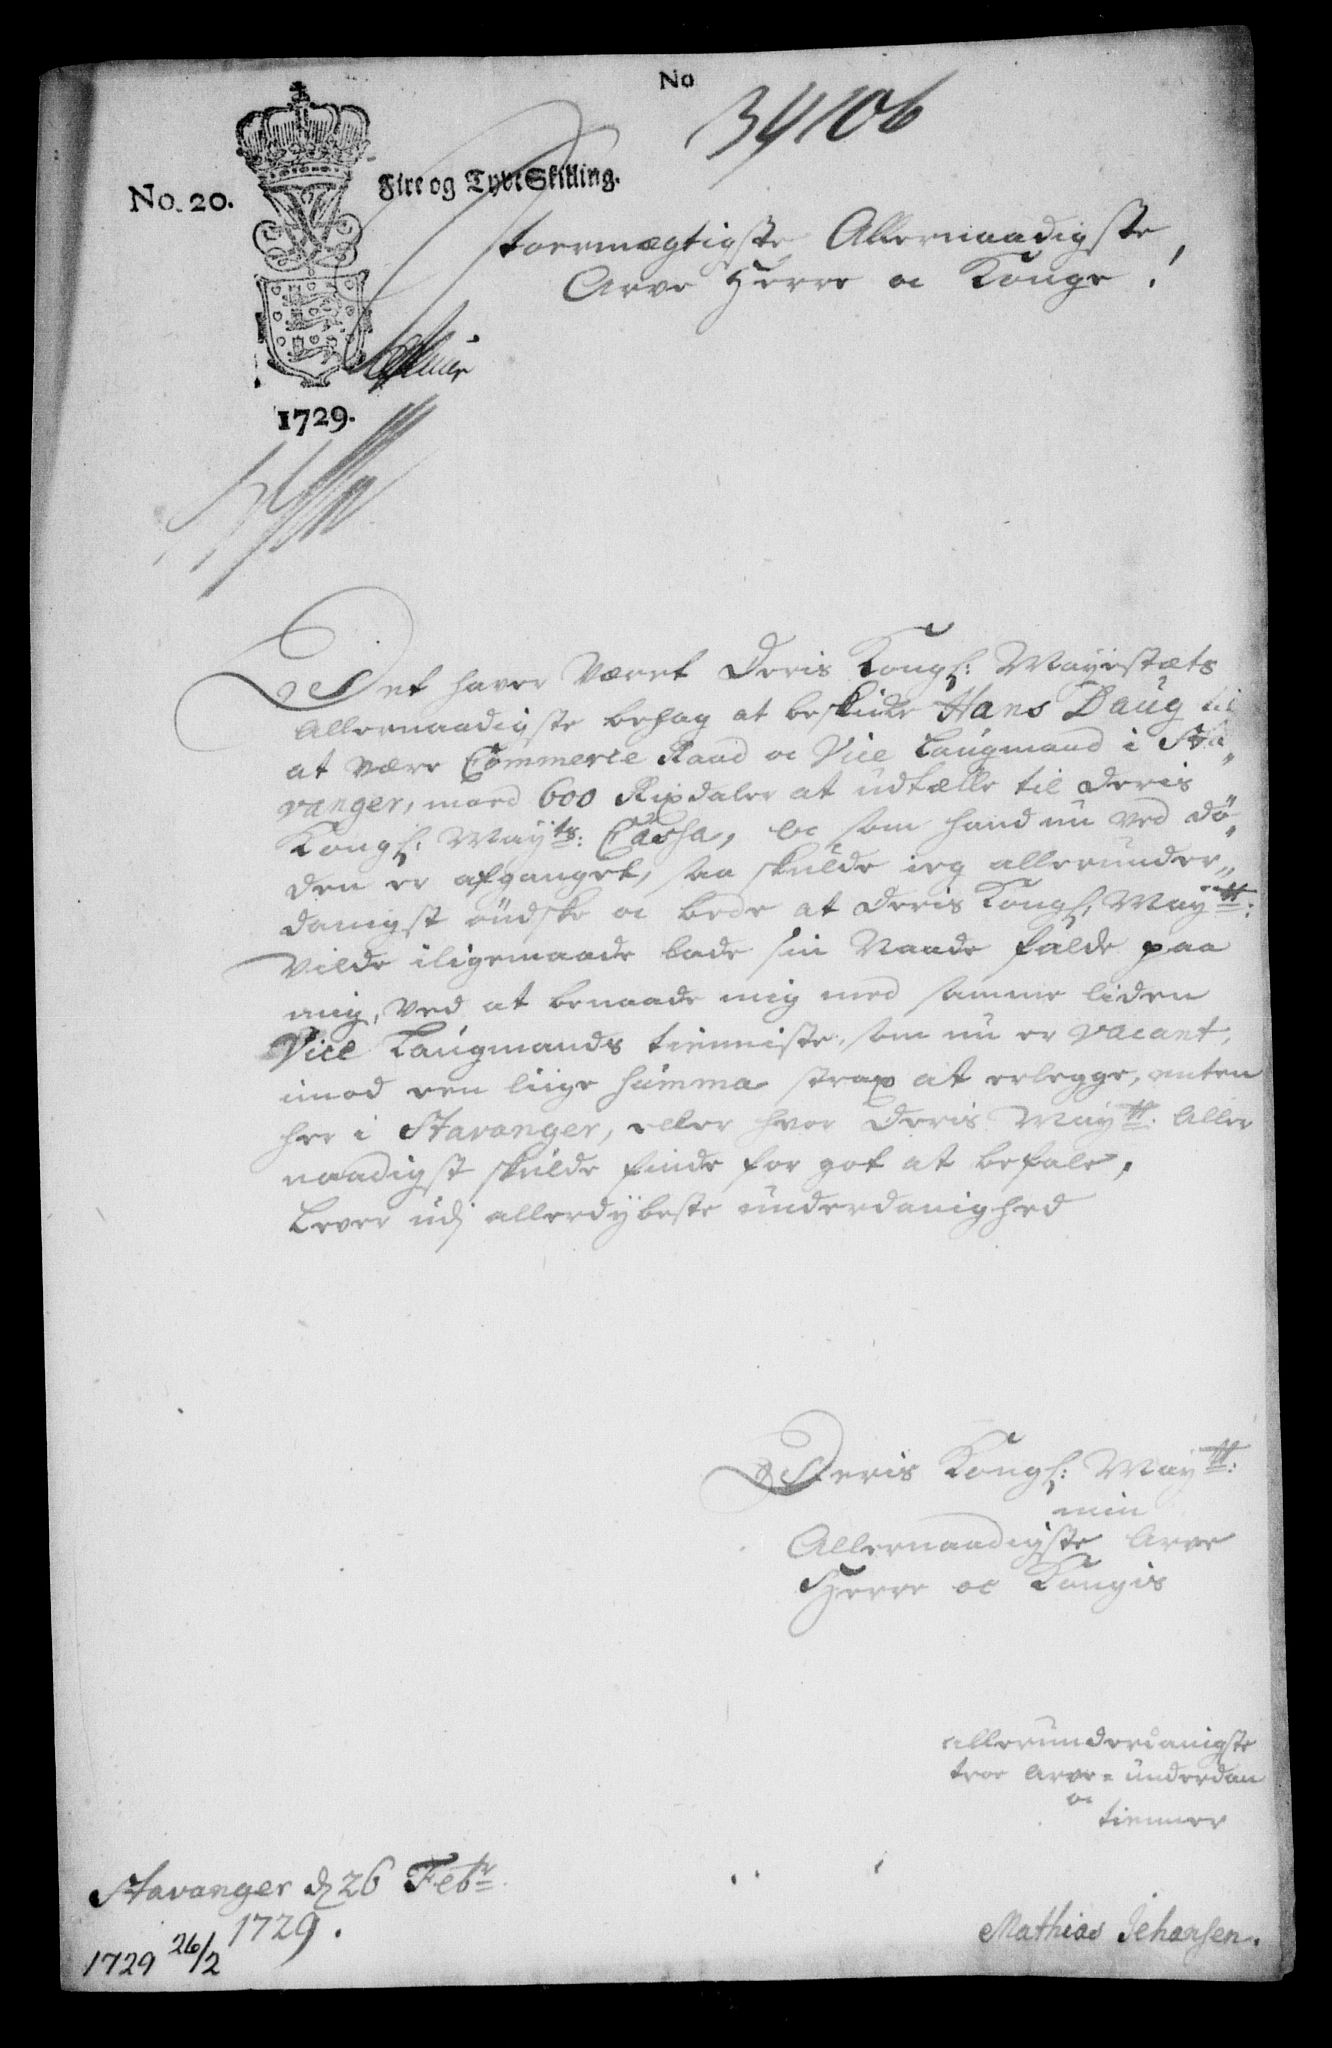 No
34106
No. 20.
Fire og Tyve Skilling.
Stoermægtigste Allernaadigste
Arve Herre oc Konge!
1729.
Det haver Været Deris Kongl: Mayestæts
Allernaadigste behag at beskicke Hans Daug til
at være Commerce Raad oc Vice Laugmand i Sta„
vanger, moed 600 Rixdaler at udtælle til Deris
Kongl: Mayts: Cassa, oc som hand nu ved Dö„
den er afganget, saa skulde ieg allerunder„
danigst öndske oc bede at Deris Kongl: Maytt:
Vilde iligemaade lade sin Naade falde paa
mig, Ved at benaade mig med samme liden
Vice Laugmands tienniste, som nu er vacant,
imod een liige summa strax at erlegge, enten
her i Stavanger, eller hvor Deris Maytt: Aller
naadigst skulde finde for got at befale,
Lever udj allerdybeste underdanighed
Deris Kongl: Maytt:
min
Allernaadigste Arve
Herre oc Kongis
allerunderdanigste
troe Arve-underdan
oc
tienner
Stavanger d 26 Febr
1729.
Mathias Jehansen.
1729 26/2